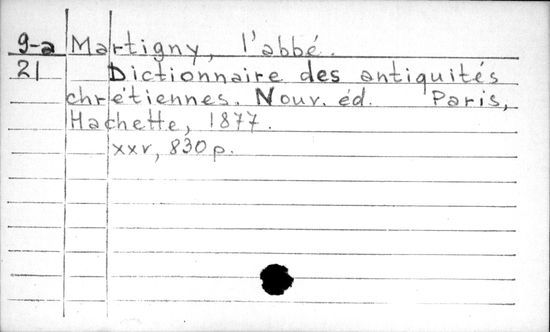 9-a Martigny, l'abbé.
21 Dictionnaire des antiquités
chrétiennes. Nouv. éd. Paris,
Hachette, 1877.
xxv, 830 p.